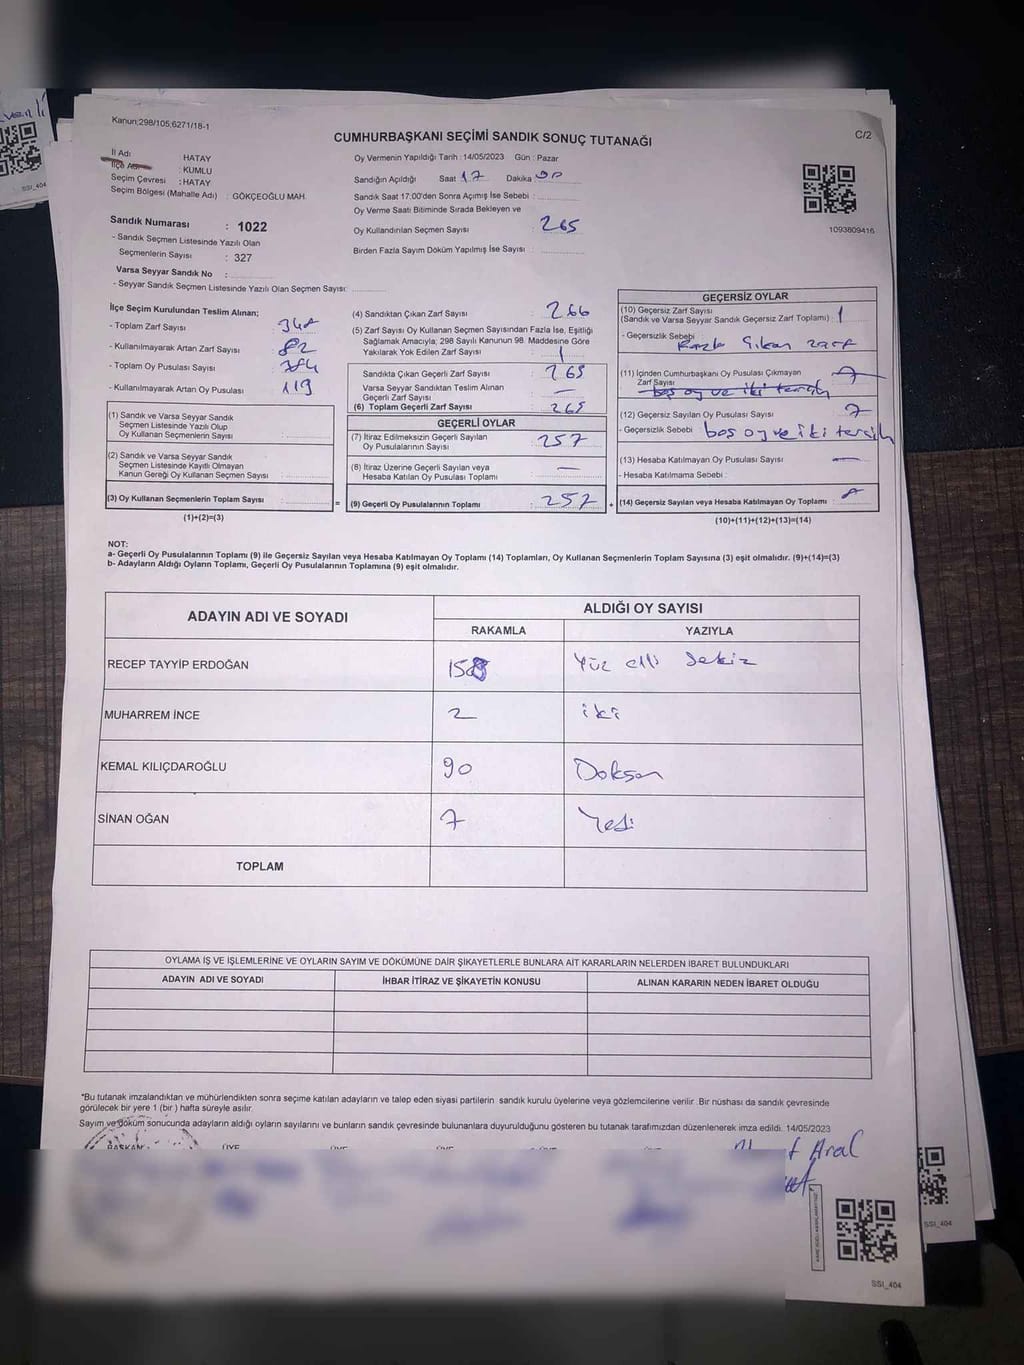 Kanun;298/105;6271/18-1
CUMHURBAŞKANI SEÇİMİ SANDIK SONUÇ TUTANAĞI
C/2
İl Adı HATAY
İlçe Adı : KUMLU
Seçim Çevresi : HATAY
Seçim Bölgesi (Mahalle Adı) : GÖKÇEOĞLU MAH.
Sandık Numarası : 1022
- Sandık Seçmen Listesinde Yazılı Olan
Seçmenlerin Sayısı : 327
Varsa Seyyar Sandık No :
- Seyyar Sandık Seçmen Listesinde Yazılı Olan Seçmen Sayısı:
Oy Vermenin Yapıldığı Tarih : 14/05/2023 Gün : Pazar
Sandığın Açıldığı Saat 17 Dakika 00
Sandık Saat 17:00'den Sonra Açımış İse Sebebi :
Oy Verme Saati Bitiminde Sırada Bekleyen ve
Oy Kullandırılan Seçmen Sayısı : 265
Birden Fazla Sayım Döküm Yapılmış İse Sayısı :
1093809416
İlçe Seçim Kurulundan Teslim Alınan;
- Toplam Zarf Sayısı :
- Kullanılmayarak Artan Zarf Sayısı : 82
- Toplam Oy Pusulası Sayısı : 384
- Kullanılmayarak Artan Oy Pusulası : 119
(1) Sandık ve Varsa Seyyar Sandık
Seçmen Listesinde Yazılı Olup
Oy Kullanan Seçmenlerin Sayısı :
(2) Sandık ve Varsa Seyyar Sandık
Seçmen Listesinde Kayıtlı Olmayan
Kanun Gereği Oy Kullanan Seçmen Sayısı :
(3) Oy Kullanan Seçmenlerin Toplam Sayısı :
(1)+(2)=(3)
(4) Sandıktan Çıkan Zarf Sayısı : 266
(5) Zarf Sayısı Oy Kullanan Seçmen Sayısından Fazla İse, Eşitliği
Sağlamak Amacıyla; 298 Sayılı Kanunun 98. Maddesine Göre
Yakılarak Yok Edilen Zarf Sayısı : 1
Sandıkta Çıkan Geçerli Zarf Sayısı : 265
Varsa Seyyar Sandıktan Teslim Alınan
Geçerli Zarf Sayısı : —
(6) Toplam Geçerli Zarf Sayısı : 265
GEÇERLİ OYLAR
(7) İtiraz Edilmeksizin Geçerli Sayılan
Oy Pusulasının Sayısı : 257
(8) İtiraz Üzerine Geçerli Sayılan veya
Hesaba Katılan Oy Pusulası Toplamı : —
= (9) Geçerli Oy Pusulalarının Toplamı : 257
GEÇERSİZ OYLAR
(10) Geçersiz Zarf Sayısı
(Sandık ve Varsa Seyyar Sandık Geçersiz Zarf Toplamı) : 1
- Geçersizlik Sebebi : Fazla Çıkan zarf
(11) İçinden Cumhurbaşkanı Oy Pusulası Çıkmayan
Zarf Sayısı
boş oy ve iki tercih
(12) Geçersiz Sayılan Oy Pusulası Sayısı : 7
- Geçersizlik Sebebi : boş oy ve iki tercih
(13) Hesaba Katılmayan Oy Pusulası Sayısı : —
- Hesaba Katılmama Sebebi :
+ (14) Geçersiz Sayılan veya Hesaba Katılmayan Oy Toplamı : 8
(10)+(11)+(12)+(13)=(14)
NOT:
a- Geçerli Oy Pusulalarının Toplamı (9) ile Geçersiz Sayılan veya Hesaba Katılmayan Oy Toplamı (14) Toplamları, Oy Kullanan Seçmenlerin Toplam Sayısına (3) eşit olmalıdır. (9)+(14)=(3)
b- Adayların Aldığı Oyların Toplamı, Geçerli Oy Pusulalarının Toplamına (9) eşit olmalıdır.
ADAYIN ADI VE SOYADI ALDIĞI OY SAYISI
RAKAMLA YAZIYLA
RECEP TAYYİP ERDOĞAN 158 Yüz elli Sekiz
MUHARREM İNCE 2 iki
KEMAL KILIÇDAROĞLU 90 Doksan
SİNAN OĞAN 7 Yedi
TOPLAM
OYLAMA İŞ VE İŞLEMLERİNE VE OYLARIN SAYIM VE DÖKÜMÜNE DAİR ŞİKAYETLERLE BUNLARA AİT KARARLARIN NELERDEN İBARET BULUNDUKLARI
ADAYIN ADI VE SOYADI İHBAR İTİRAZ VE ŞİKAYETİN KONUSU ALINAN KARARIN NEDEN İBARET OLDUĞU
*Bu tutanak imzalandıktan ve mühürlendikten sonra seçime katılan adayların ve talep eden siyasi partilerin sandık kurulu üyelerine veya gözlemcilerine verilir. Bir nüshası da sandık çevresinde
görülecek bir yere 1 (bir ) hafta süreyle asılır.
Sayım ve döküm sonucunda adayların aldığı oyların sayılarını ve bunların sandık çevresinde bulunanlara duyurulduğunu gösteren bu tutanak tarafımızdan düzenlenerek imza edildi. 14/05/2023
BAŞKAN ÜYE ÜYE ÜYE ÜYE
Aral
SSI_404
SSI_404
SSI_404